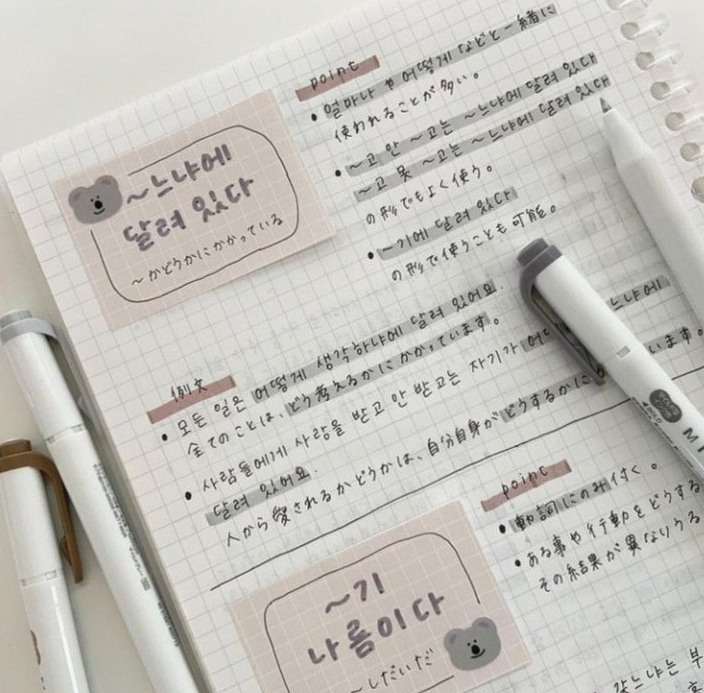 ~느냐에
달려 있다
~かどうかにかかっている
point
• 얼마나 や 어떻게 などと一緒に
使われることが多い。
• ~고 안 ~고는 ~느냐에 달려 있다
~고 못 ~고는 ~느냐에 달려 있다
の形でもよく使う。
• ~기에 달려 있다
の形で使うことも可能。
例文
• 모든 일은 어떻게 생각하냐에 달려 있어요.
全てのことは、どう考えるかにかかっています。
• 사람들에게 사랑을 받고 안 받고는 자기가 느냐에
달려 있어요.
人から愛されるかどうかは、自分自身がどうするかに います。
point
• 動詞にのみ付く。
• ある事や行動をどうする
その結果が異なりうる
~기
나름이다
~しだいだ